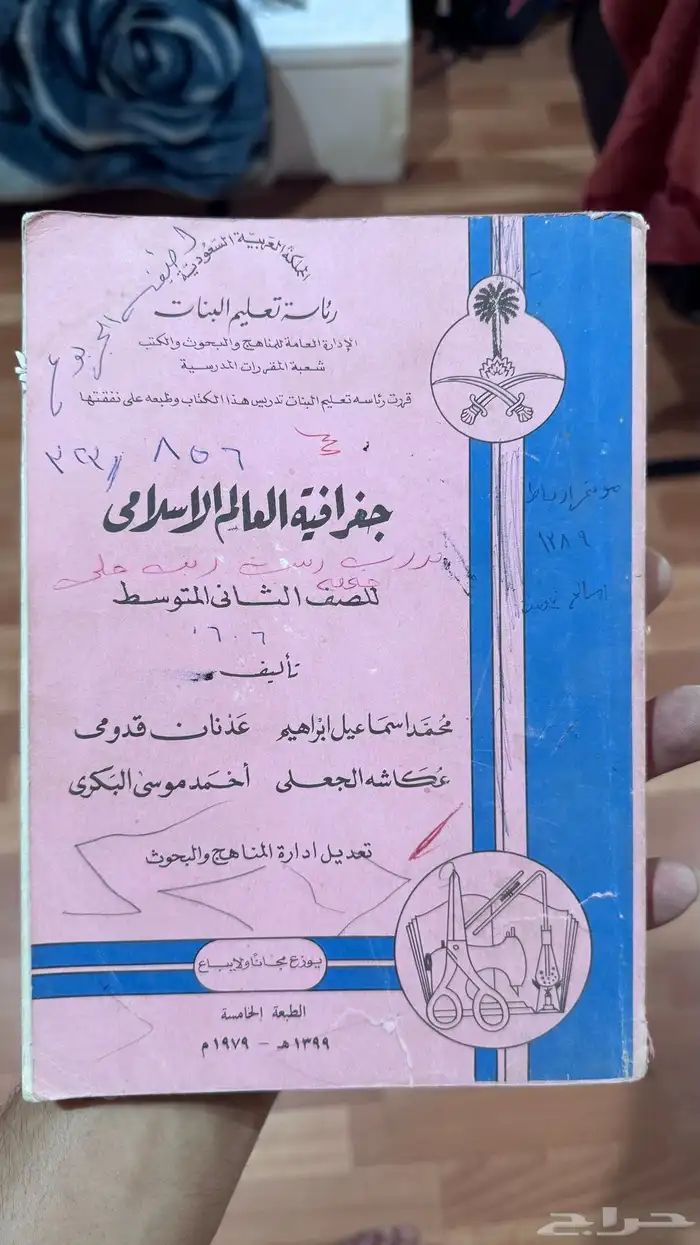 المملكة العربية السعودية
رئاسة تعليم البنات
الإدارة العامة للمناهج والبحوث والكتب
شعبة المقررات المدرسية
قررت رئاسه تعليم البنات تدريس هذا الكتاب وطبعه على نفقتها
٨٥٦
٤
جغرافية العالم الاسلامى
١٢٨٩
للصف الثانى المتوسط
٦٠٦
تأليف
محمد اسماعيل ابراهيم عدنان قدومى
عكاشه الجعلى أحمد موسى البكرى
تعديل ادارة المناهج والبحوث
يوزع مجانا ولايباع
الطبعة الخامسة
١٣٩٩هـ - ١٩٧٩م
حراج